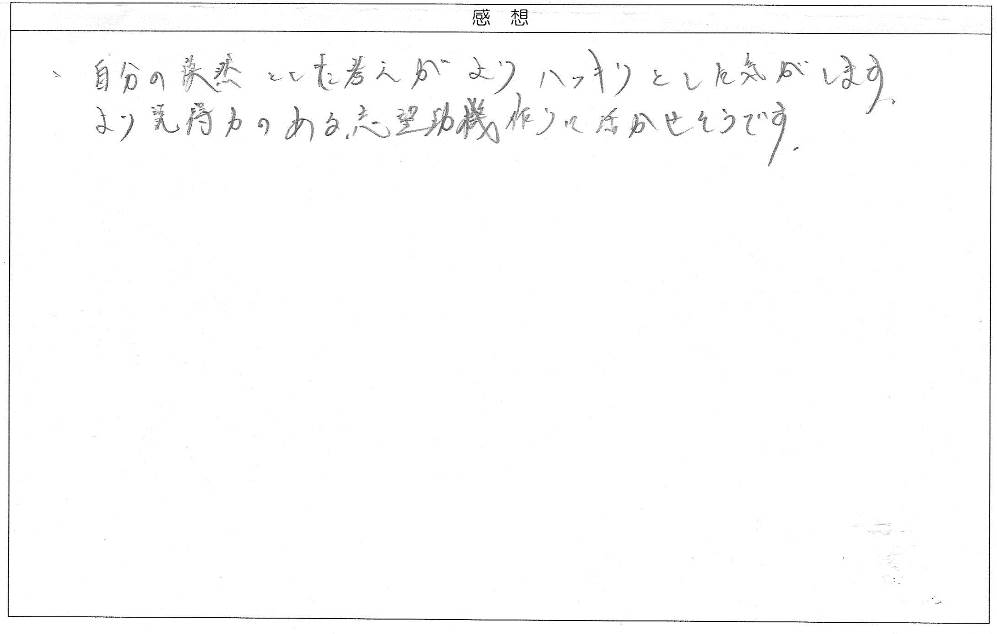 感想
、自分の漠然とした考えがよりハッキリとした気がします。
より説得力のある志望動機作りに活かせそうです。